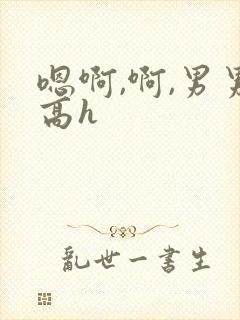 嗯啊,啊,男男
高h
乱世一书生